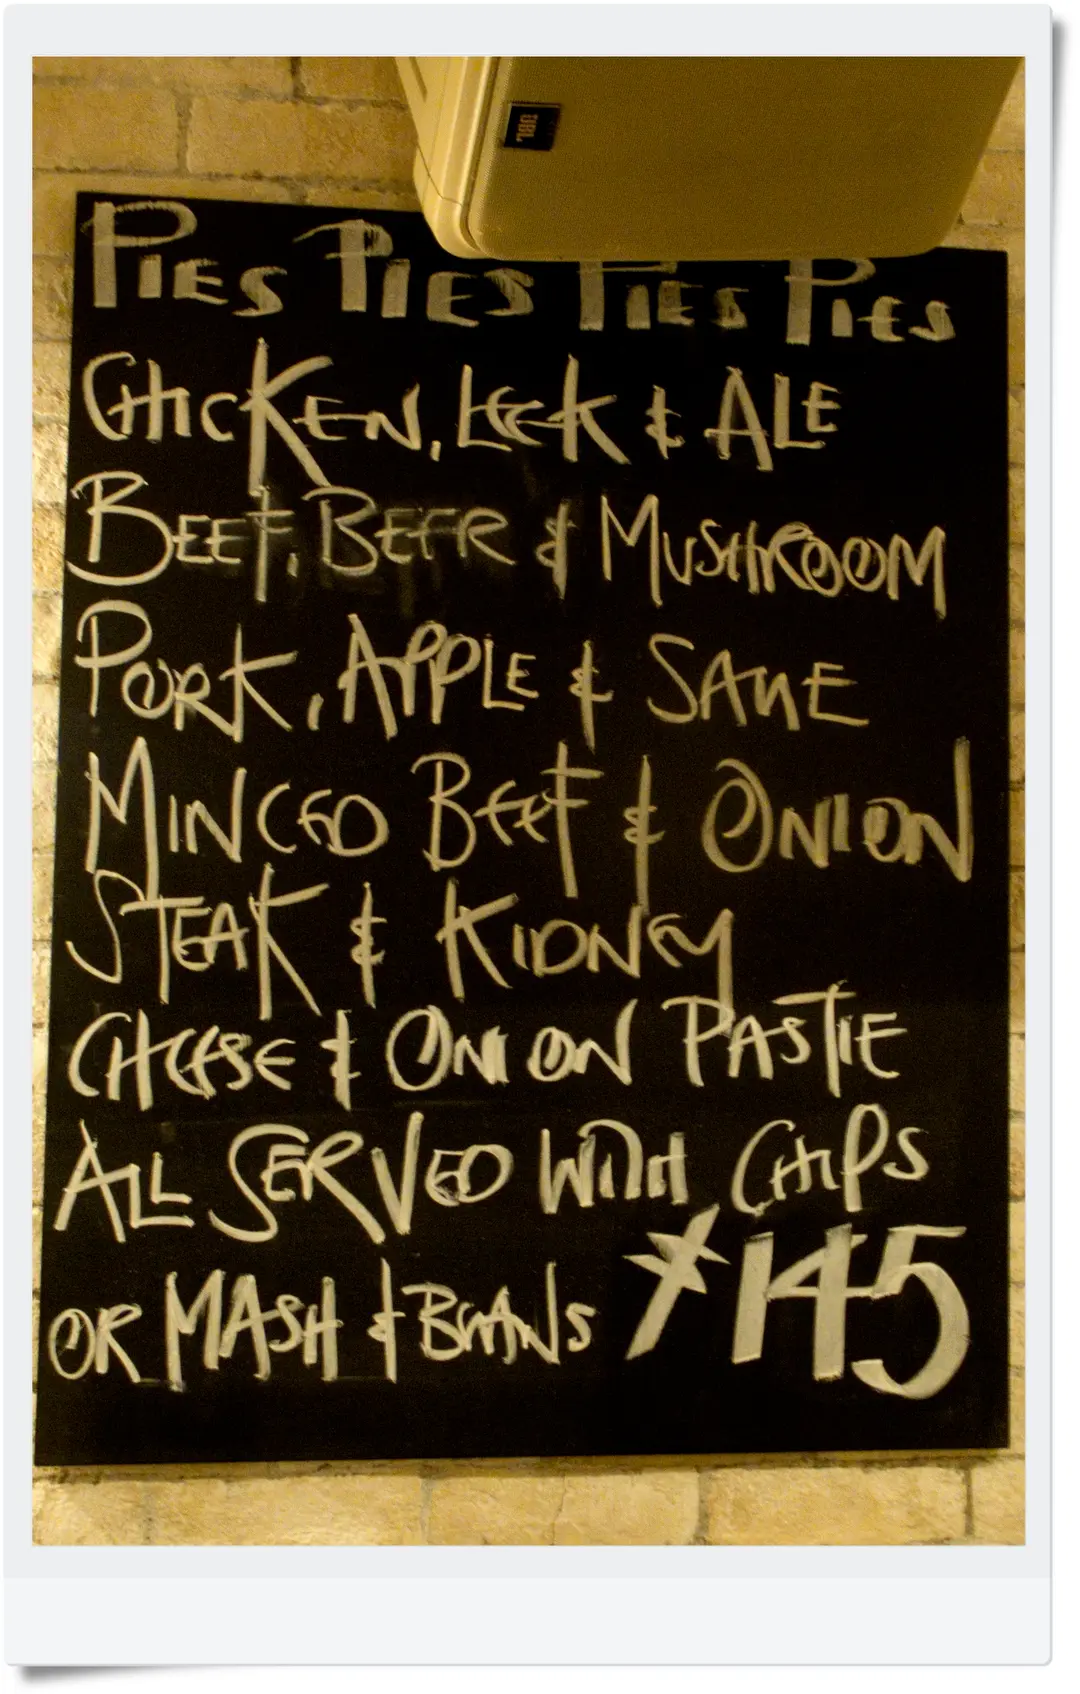 JBL
PIES PIES PIES PIES
CHICKEN, LEEK & ALE
BEEF, BEER & MUSHROOM
PORK, APPLE & SAGE
MINCED BEEF & ONION
STEAK & KIDNEY
CHEESE & ONION PASTIE
ALL SERVED WITH CHIPS
OR MASH & BEANS *145